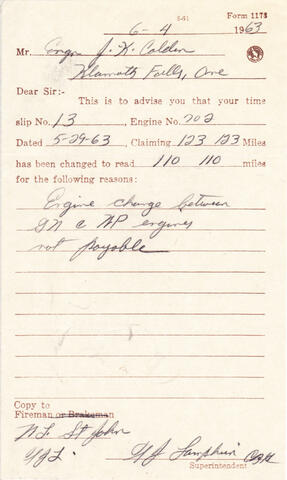 5-51 Form 1178
6-4 1963
Mr. Engr J. K. Calden
Klamath Falls, Ore
Dear Sir:-
This is to advise you that your time
slip No. 13, Engine No. 702
Dated 5-29-63, Claiming 123 123 Miles
has been changed to read 110 110 miles
for the following reasons:
Engine change between
GN & WP engines
not payable
Copy to
Fireman or Brakeman
St John
Superintendent